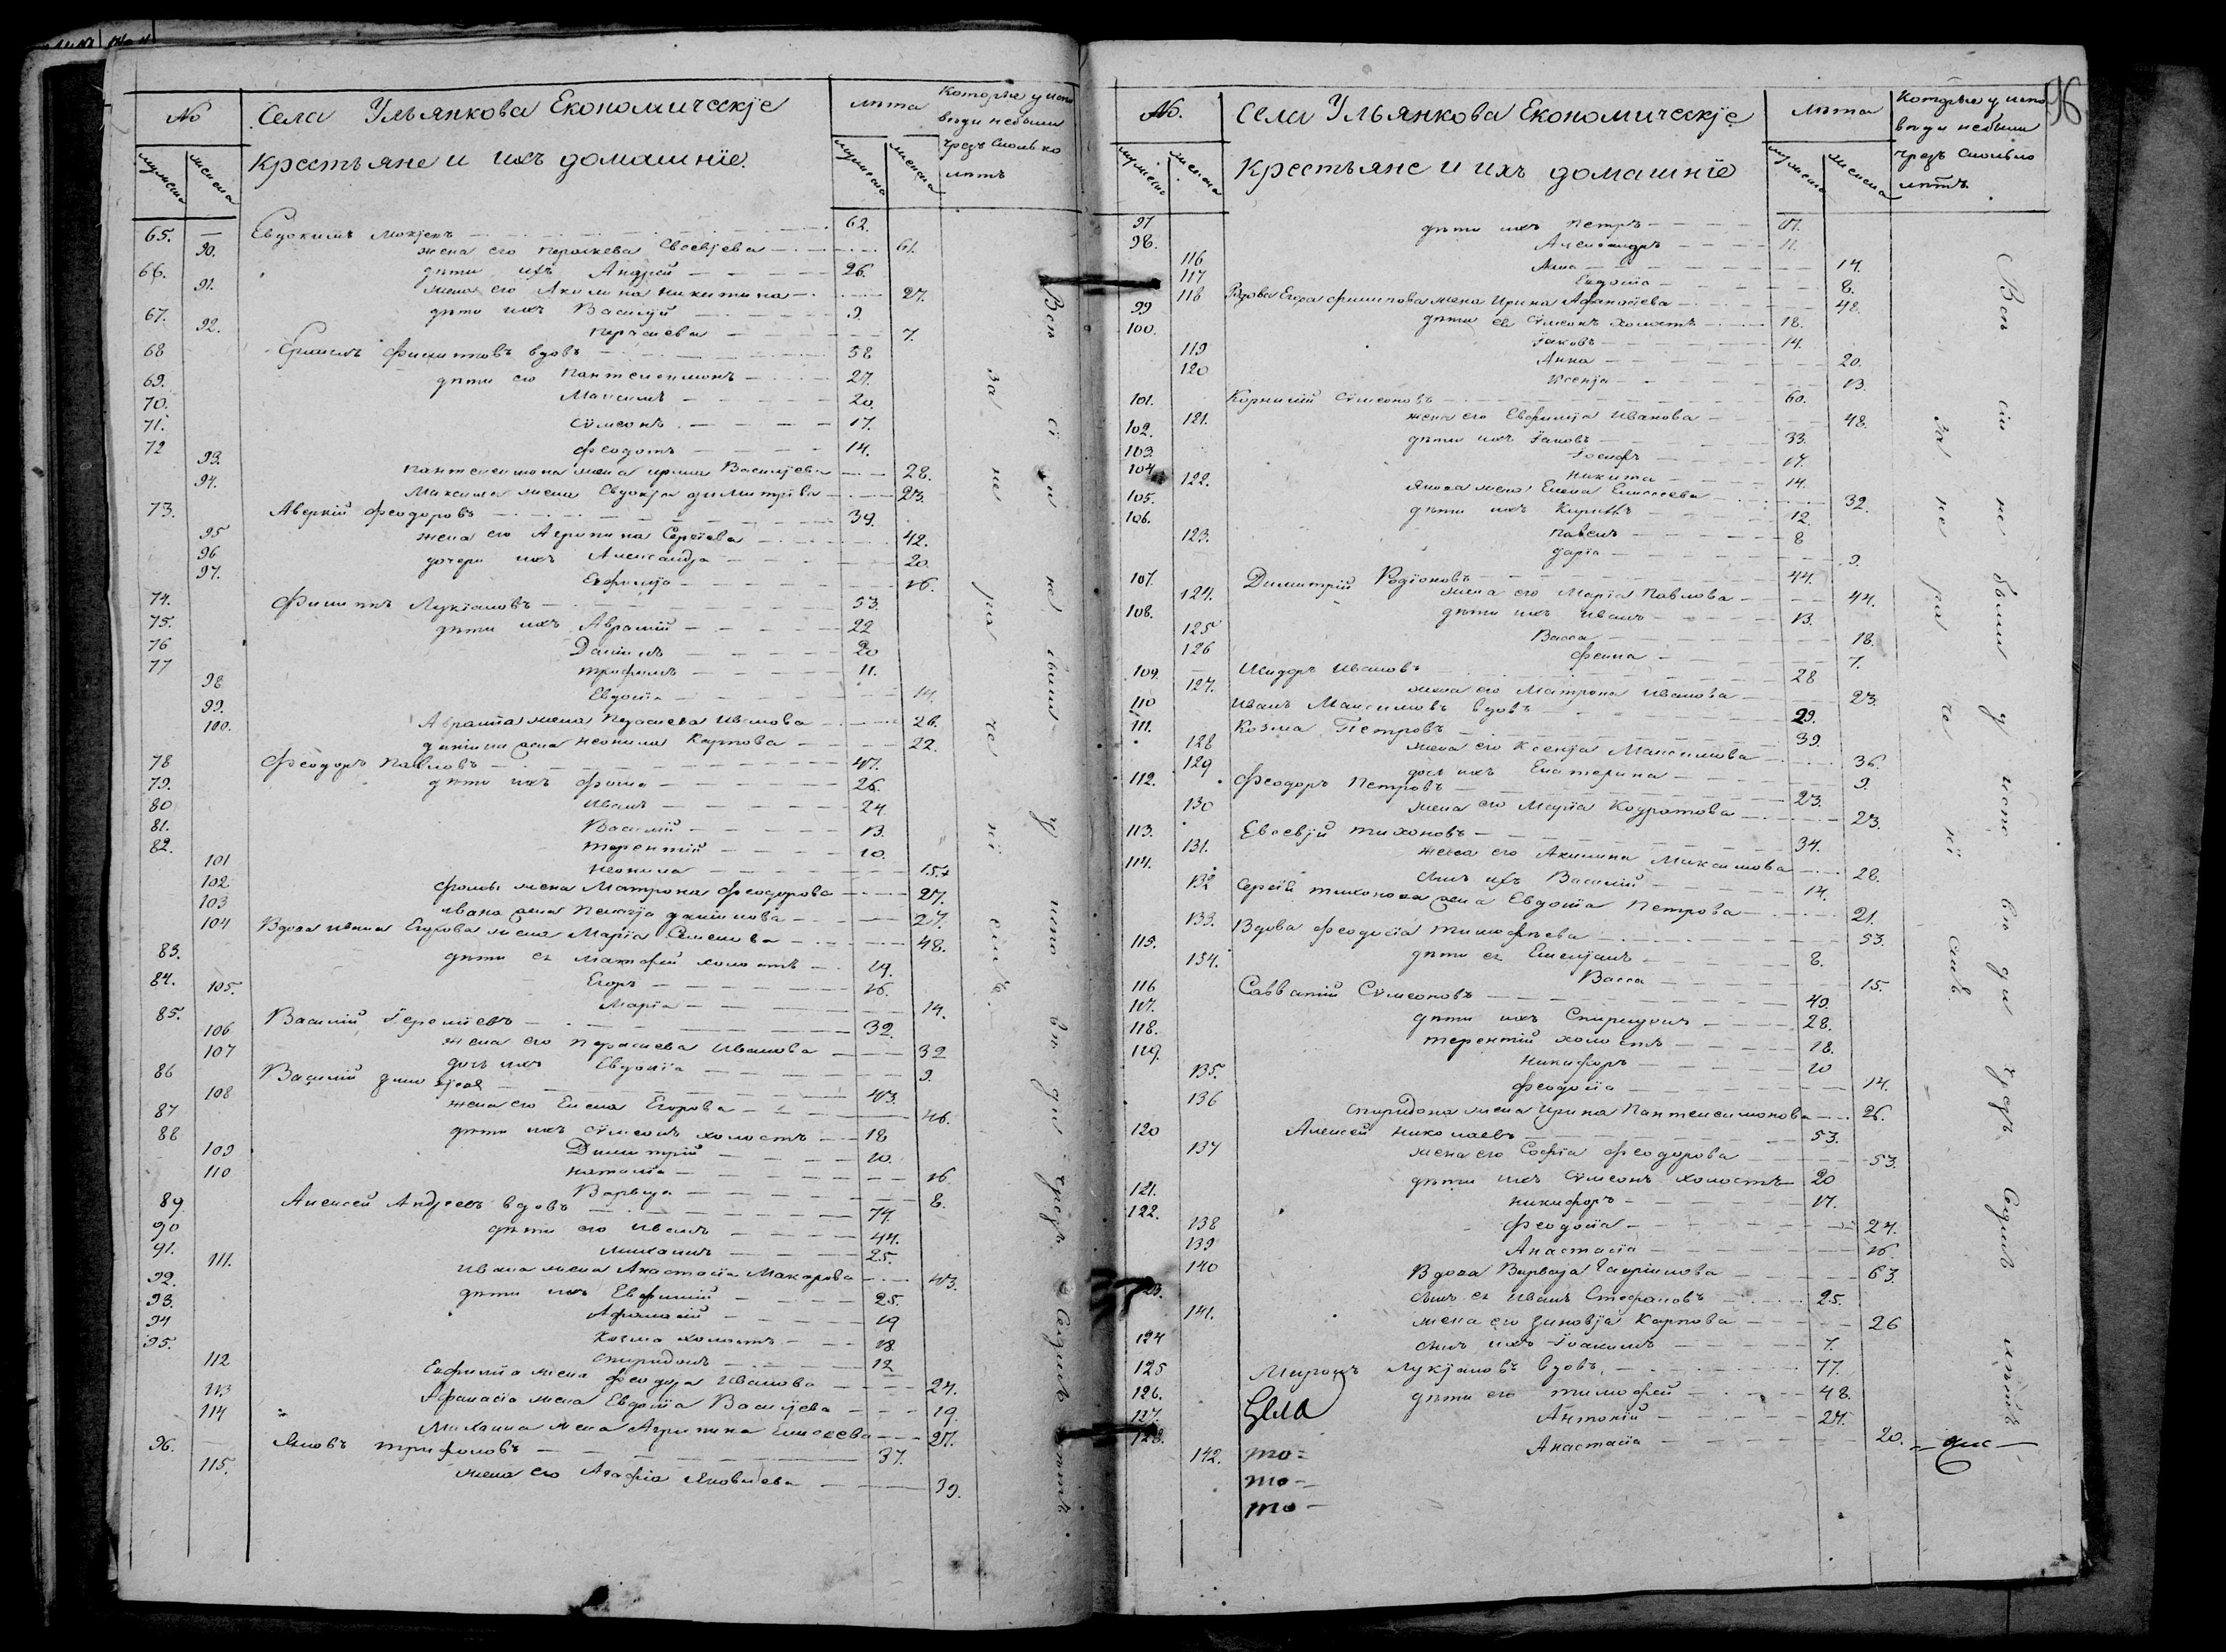 No Села Ульянкова Економическїе лѣта Которые у испо
крестьяне и ихъ домашнїе. вѣди небыли
мужеска женска мужеска женска чрезъ сколько
лѣтъ
65. — Евдокимъ 62.
90. жена его Евсевјева 61.
66. дѣти ихъ Андрей 26.
91. жена его Акилина Никитина 27.
67. дѣти ихъ Василий 9.
92. 7.
68 Филиповъ вдовъ 58
69. дѣти его Пантелеимонъ 27.
70. Максимъ 20.
71. Сѵмеонъ 17.
72 Феодотъ 14.
93. Пантелеимона жена Ирина Васильева 28.
94. Максима жена Евдокја Димитріева 23.
73. Аверкїй Феодоровъ 39.
95 жена его Агрипина Сергїева 42.
96 дочери ихъ Александра 20.
97. Евфимја 16.
74. Филиппъ Лукїановъ 53.
75. дѣти ихъ Аврамїй 22
76 Данїилъ 20
77 Трофимъ 11.
98 Евдокїа 14.
99. Аврамїа жена Парасковья Иванова 26.
100. Данїила жена Неонила Карпова 22.
78 Феодоръ Павловъ 47.
79. дѣти ихъ Фома 26.
80 Иванъ 24.
81. Василїй 13.
82. Терентїй 10.
101 Неонила 15.
102 Фомы жена Матрона Феодорова 27.
103 Ивана жена Пелагја Данїилова 27.
104 Вдова Ивана Егорова жена Марїа Семенова 48.
83. дѣти ея Матфей холостъ 19.
84. Егоръ 16.
105. Марїа 14.
85. Василїй Іеремїевъ 32.
106 жена его Парасковья Иванова 32
107 дочь ихъ Евдокїа 9.
86 Василїй 43.
108 жена его Елена Егорова 46.
87 дѣти ихъ Сѵмеонъ холостъ 18
88 Димитрїй 10.
109 Наталїа 16.
110 Варвара 8.
89. Алексей Андреевъ вдовъ 74.
90 дѣти его Иванъ 44.
91. Михаилъ 25.
111. Ивана жена Анастасїа Макарова 43.
92. дѣти ихъ Евфимїй 25.
93. Афанасїй 19
94 Козма холостъ 18.
95. Спиридонъ 12
112 Евфимїа жена Феодора Иванова 24.
113 Афанасїа жена Евдокїа Васильева 19.
114 Михаила жена Агрипина Елисеева 27.
96. Яковъ Трифоновъ 37.
115. жена его Агафїа Яковлева 39.
Всѣ сїи не были у испо вѣди чрезъ Седмъ лѣтъ.
за не ра че нї емъ.
96
No. Села Ульянкова Економическїе лѣта Которые у испо
крестьяне и ихъ домашнїе вѣди небыли
мужеска женска мужеска женска чрезъ сколько
лѣтъ
97 дѣти ихъ Петръ 17.
98. Александръ 11.
116 Анна 14.
117 Евдокїа 8.
118 Вдова Егора Филипова жена Ирина Афанасїева 48.
99 дѣти ея Сѵмеонъ холостъ 18.
100. Іаковъ 14.
119 Анна 20.
120 Ксенја 13.
101. Корнилїй Сѵмеоновъ 60.
121. жена его Евфимја Иванова 48.
102. дѣти ихъ Іаковъ 33.
103 Іосифъ 17.
104 Никита 14.
122. Якова жена Елена Елисеева 32.
105. дѣти ихъ Кирилъ 12.
106. Павелъ 8
123. Дарїа 9.
107. Димитрїй Родїоновъ 44.
124. жена его Марїа Павлова 44.
108. дѣти ихъ Иванъ 13.
125 Васса 18.
126 Фекла 7.
109. Исидоръ Ивановъ 28
127. жена его Матрона Иванова 23.
110 Иванъ Максимовъ вдовъ 29.
111. Козма Петровъ 39.
128 жена его Ксенја Максимова 36.
129 дочь ихъ Екатерина 9.
112. Феодоръ Петровъ 23.
130 жена его Марїа Кодратова 23.
113. Евсевїй Тихоновъ 34.
131. жена его Акилина Максимова 28.
114. сынъ ихъ Василїй 14.
132 Сергїя Тихонова жена Евдокїа Петрова 21.
133. Вдова Феодосїа Тимофѣева 53.
115. дѣти ея Емелїанъ 8.
134. Васса 15.
116 Савватїй Сѵмеоновъ 49.
117. дѣти ихъ Спиридонъ 28.
118. Терентїй холостъ 18.
119. Никифоръ 10
135. Феодосїа 14.
136 Спиридона жена Ирина Пантелеимонова 26.
120 Алексей Николаевъ 53.
137 жена его Софїа Феодорова 53.
121. дѣти ихъ Сѵмеонъ холостъ 20
122. Никифоръ 17.
138 Феодосїа 24.
139 Анастасїа 16.
140 Вдова Варвара Гаврилова 63.
123. сынъ ея Иванъ Стефановъ 25.
141. жена его Зиновїа Карпова 26
124 сынъ ихъ Іоакимъ 7.
125 Миронъ Лукјановъ вдовъ 77.
126. дѣти его Тимофей 48.
127. Села Антонїй 24.
128.
142. то= Анастасїа 20.
то=
то=
Всѣ сїи не были у испо вѣди чрезъ Седмъ лѣтъ
за не ра че нї емъ.